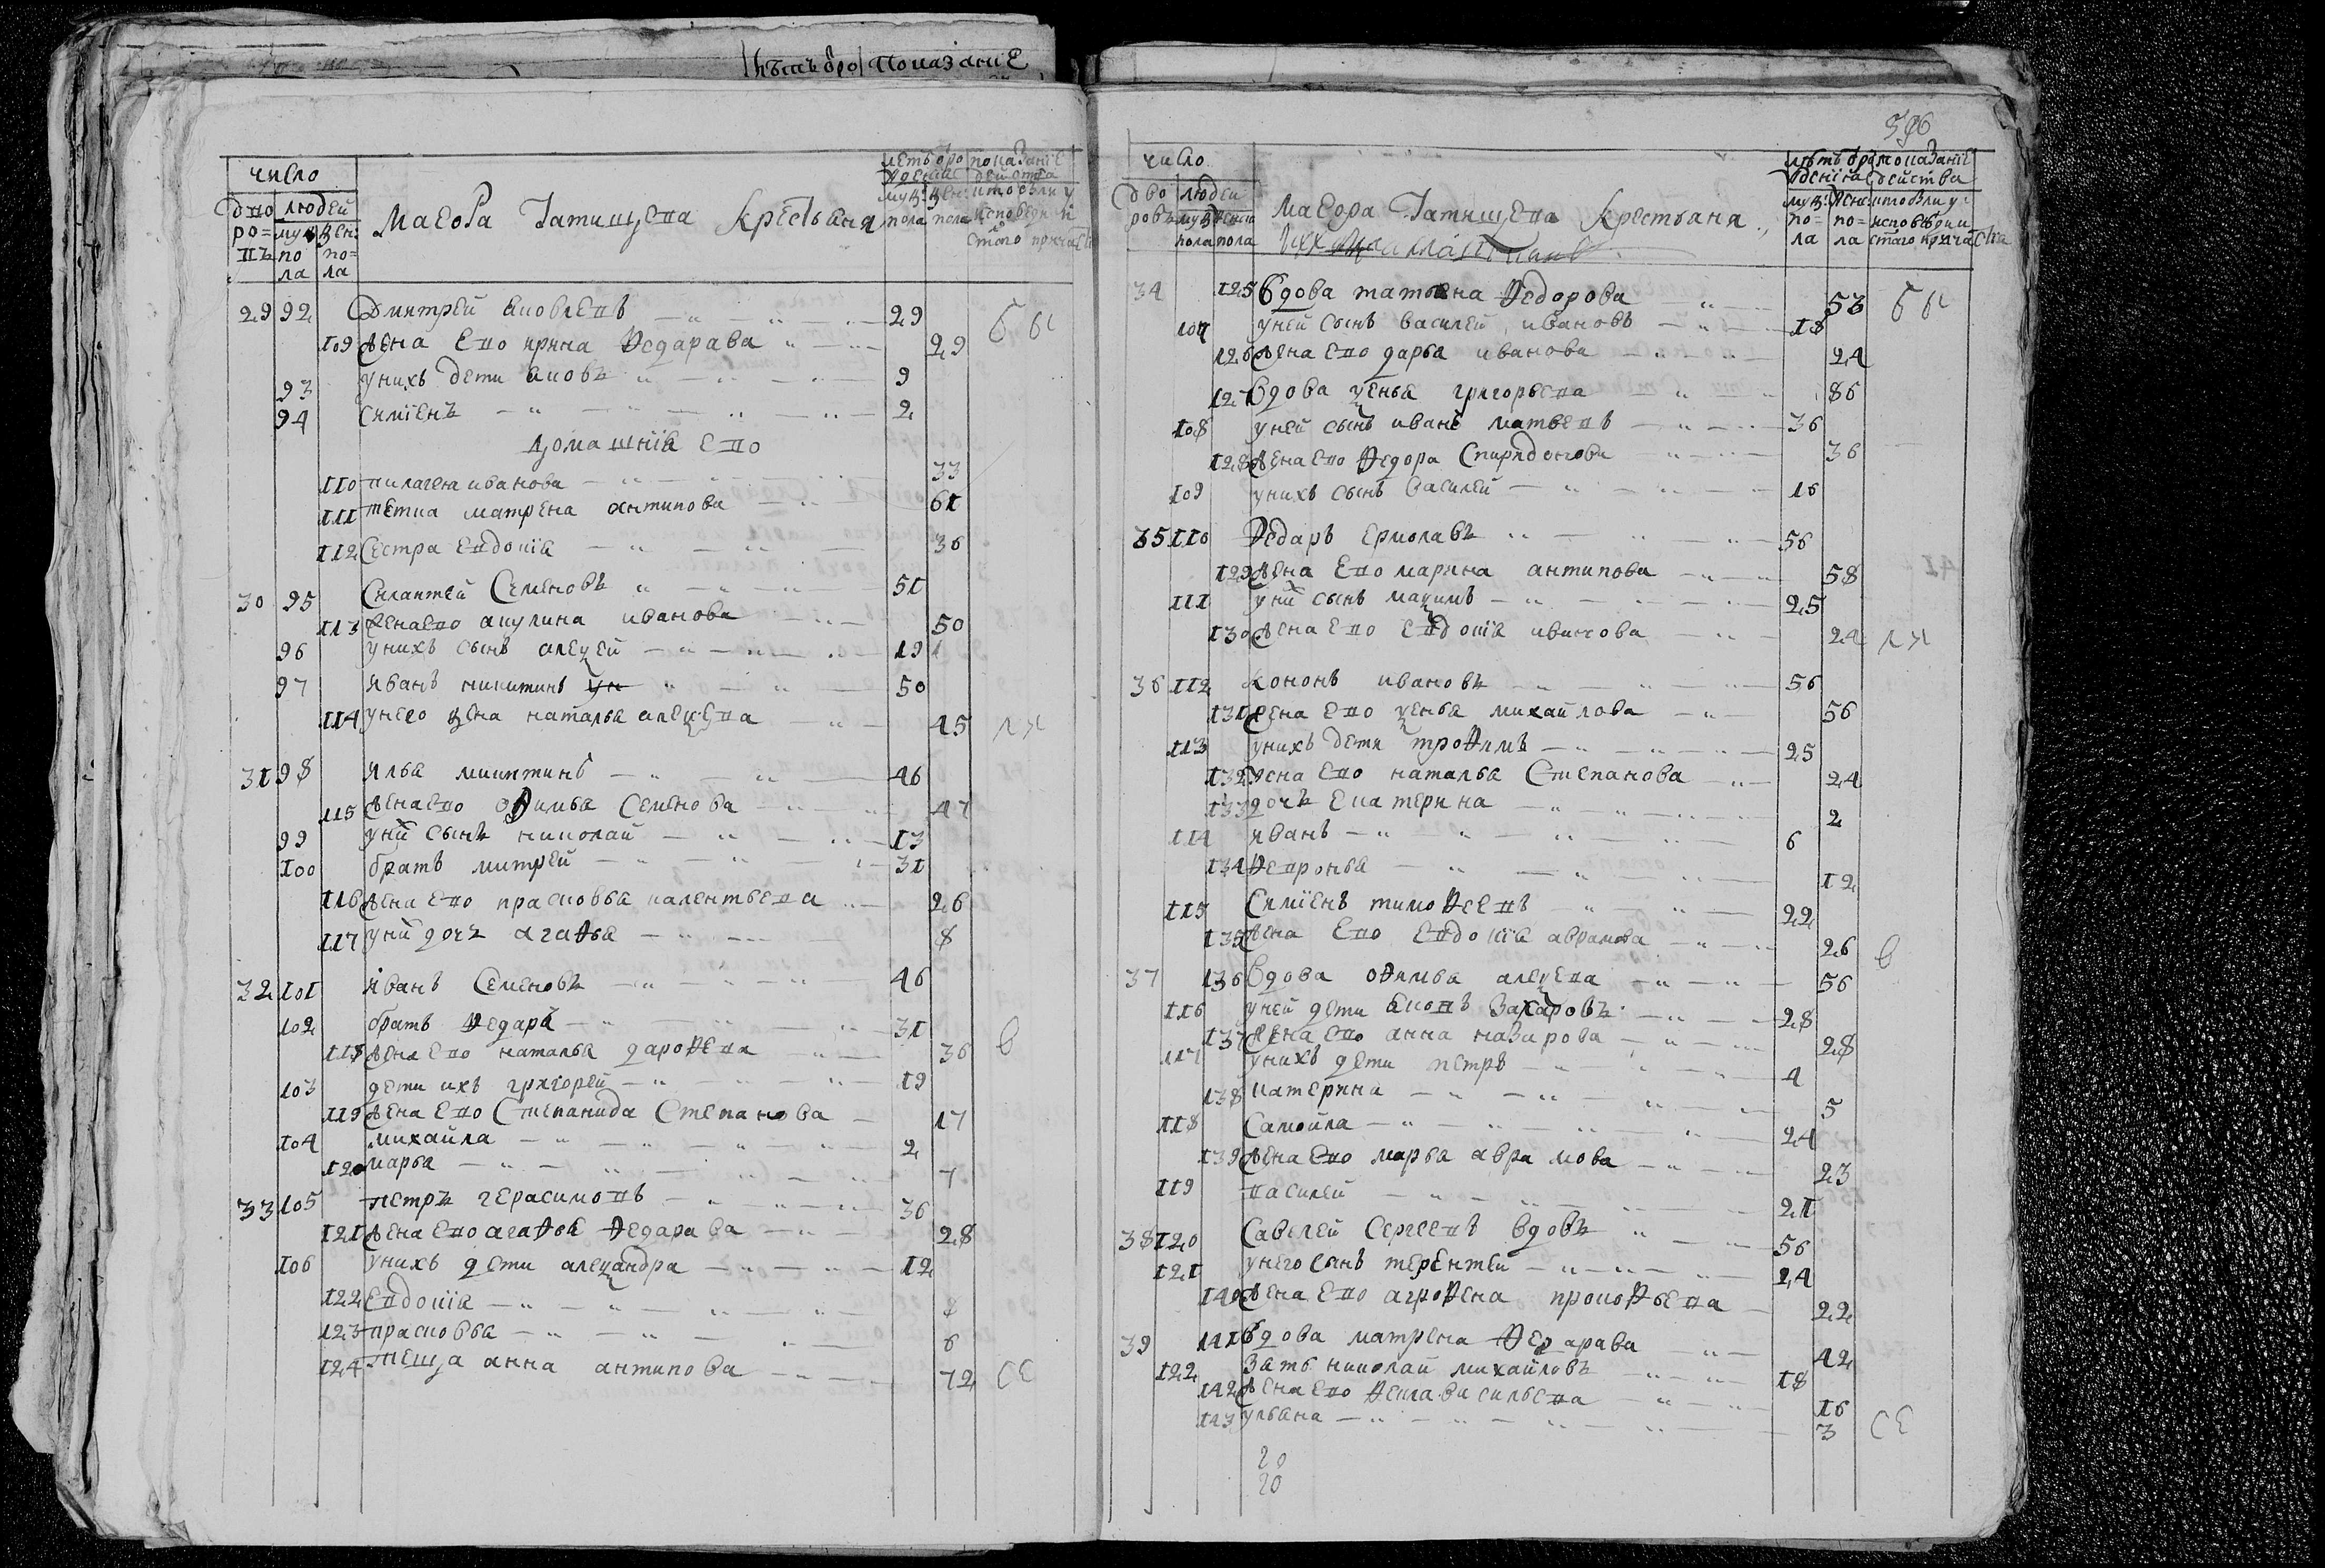 лѣтъ оро показание
число
дво людей
ро= муж жен:
въ по по=
ла ла
Маеора Татищева крестьяня
летъ оро показание
ждения действа
муж: жен: кто были у
пола пола исповеди и
стаго прича
29 92 Дмитрей яковлевъ 29 бы
109 жена ево ирина федарава 29
93 унихъ дети яковъ 9
94 симïенъ 2
домашнïя ево
110 пилагея иванова 33
111 тетка матрена антипова 61
112 сестра евдокïя 36
30 95 Силантей Семеновъ 51
113 жена ево акулина иванова 50
96 унихъ сынъ алеѯей 19
97 иванъ никитинъ ун 50
114 унего жена наталья алеѯева 45
31 98 илья микитинъ 46
115 жена ево офимья семенова 47
99 уних сынъ николай 13
100 братъ митрей 31
116 жена ево прасковья калентьева 26
117 уних дочь агафья 8
32 101 иванъ Семеновъ 46
102 братъ федаръ 31
118 жена ево наталья дарофева 36 в
103 дети ихъ григорей 19
119 жена ево Степанида Степанова 17
104 михайла 2
120 марья 7
33 105 петръ герасимовъ 36
121 жена ево агафья федарава 28
106 унихъ дети алеѯандра 12
122 евдокïя
123 прасковья 6
124 теща анна антипова 72 СЕ
число
дво людей
ровъ муж жен
пола пола
Маеора Татищева крестьяня
лѣтъ оро показание
ждения действа
муж: жена: кто были у
по= по= исповѣди и
ла ла стаго прича стиа
34 125 вдова татьяна федорова 53 бы
107 уней сынъ василей ивановъ 18
126 жена ево дарья иванова 24
127 вдова ѯенья григорьева 86
108 уней сынъ иванъ матвевъ 36
128 жена ево федора Спиридонова 36
109 унихъ сынъ василей 16
35 110 федаръ ермолавъ 56
129 жена ево марина антипова 58
111 уних сынъ маѯимъ 25
130 жена ево евдокïя иванова 24
36 112 кононъ ивановъ 56
131 жена ево ѯенья михайлова 56
113 унихъ дети трофимъ 25
132 жена ево наталья Степанова 24
133 дочь екатерина 2
114 иванъ 6
134 февронья 12
115 Симïенъ тимофеевъ 22
135 жена ево евдокïя аврамова 26 в
37 136 вдова офимья алеѯева 56
116 уней дети яковъ Захаровъ 28
137 жена ево анна назарова 28
117 унихъ дети петръ 4
138 катерина 5
118 Самойла 24
139 жена ево марья аврамова 23
119 василей 21
38 120 Савелей Сергеевъ вдовъ 56
121 унего сынъ терентей 24
140 жена ево аграфена прокофьева 22
39 141 вдова матрена федарава 42
122 зять николай михайловъ 18
142 жена ево фекла васильева 16
143 ульяна 3 СЕ
20
20